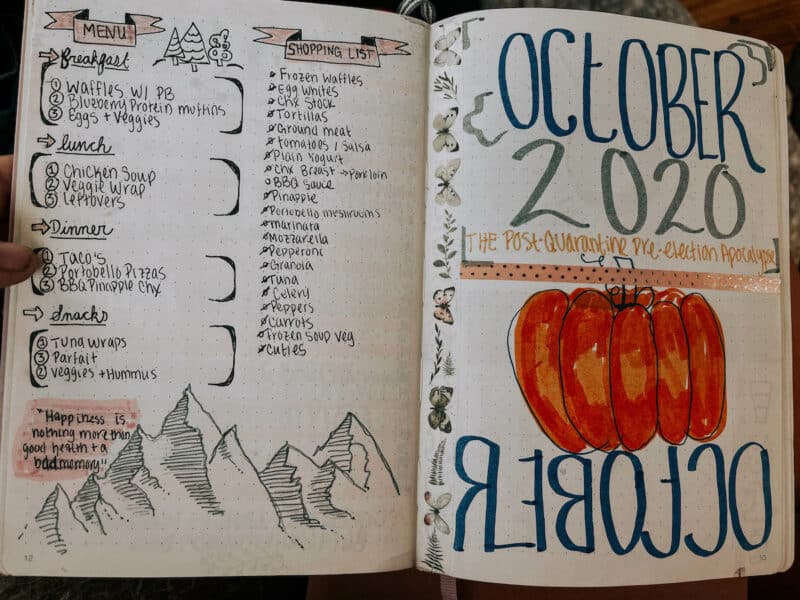 MENU
Breakfast
① Waffles w/ PB
② Blueberry Protein muffins
③ Eggs + Veggies
lunch
① Chicken Soup
② Veggie Wrap
③ Leftovers
Dinner
① Taco's
② Portobello Pizzas
③ BBQ Pinapple Chx
Snacks
① Tuna Wraps
③ Parfait
② Veggies + Hummus
"Happiness is
nothing more than
good health + a
bad memory"
12
SHOPPING LIST
Frozen Waffles
Egg Whites
Chx Stock
Tortillas
Ground meat
Tomatoes / Salsa
Plain Yogurt
Chx Breast → Porkloin
BBQ Sauce
Pinapple
Portobello meshrooms
marinara
Mozzarella
Pepperoni
Granola
Tuna
Celery
Peppers
Carrots
Frozen Soup Veg
Cuties
OCTOBER
2020
THE Post-Quarantine Pre-election Apocalypse
OCTOBER